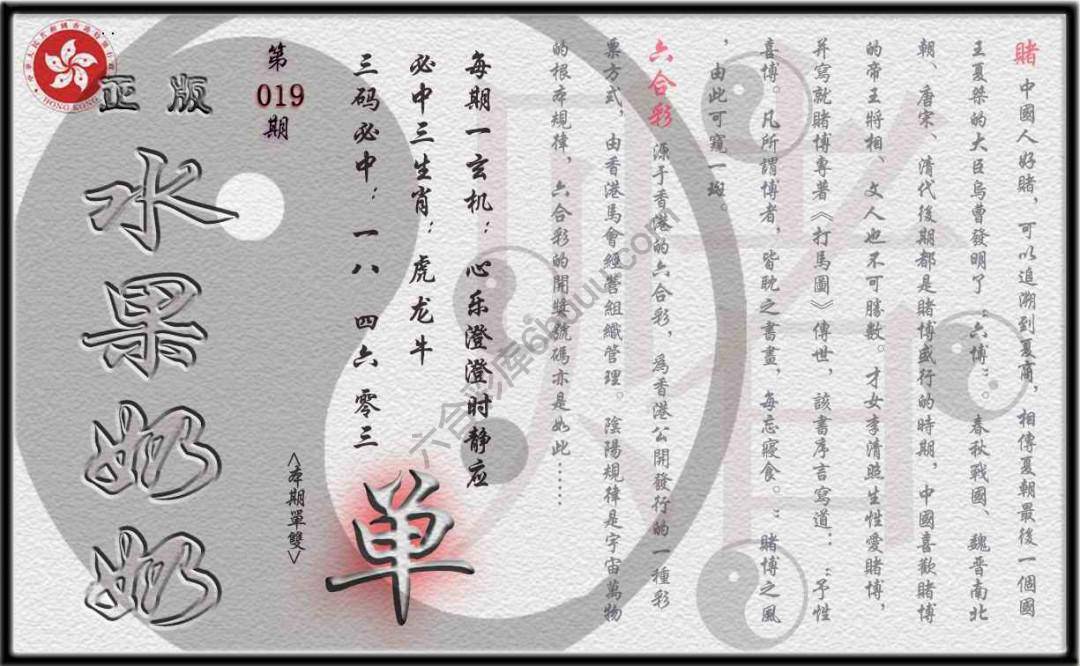 賭 中國人好賭，可以追溯到夏商，相傳夏朝最後一個國
王夏桀的大臣烏曹發明了：六博：。春秋戰國、魏晋南北
朝、唐宋、清代後期都是賭博盛行的時期，中國喜歡賭博
的帝王將相、文人也不可勝數。才女李清照生性愛賭博，
并寫就賭博專著《打馬圖》傳世，該書序言寫道：：予性
喜博。凡所謂博者，皆耽之晝晝，每忘寢食。：賭博之風
，由此可窺一斑。
六合彩 源于香港的六合彩，爲香港公開發行的一種彩
票方式，由香港馬會經營組織管理。陰陽規律是宇宙萬物
的根本規律，六合彩的開獎號碼亦是如此……
每期一玄机：心乐澄澄时静应
必中三生肖：虎龙牛
三码必中：一八 四六 零三
第
019
期
<本期單雙>
单
正版
水果奶奶
HONG KONG
六合彩库6huuu.com